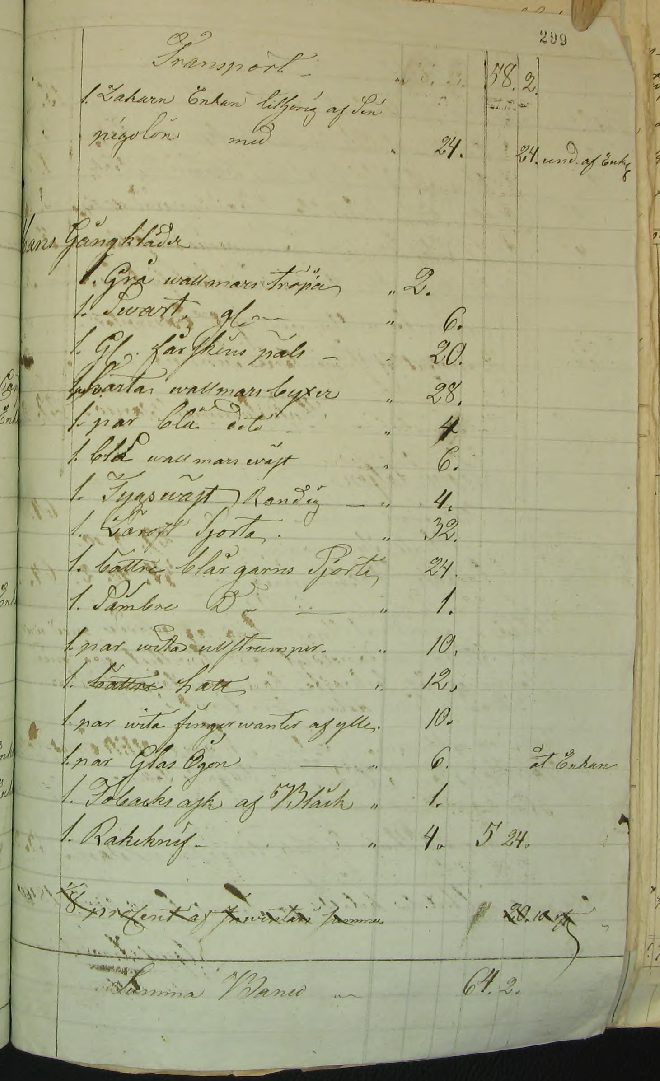 299
Transport 58. 2.
1. Enkan af
med " 24. 24. und. af Enk
Hans Gångkläder
1. Grå wallmars tröja " 2.
1. Swart gl " 6.
1. Gl. fårskins päls " 20.
1. swarta wallmars byxor " 28.
1. par blå dito " 4
1. blå wallmars wäst " 6.
1. Tygswäst Randig " 4.
1. Lärofts Sjorta " 32.
1. bättre blågarns Sjorta 24.
1. Sämbre D " 1.
1. par wita ullstrumpor " 10.
1. hatt " 12.
1. par wita fingerwanter af ylle 10.
1. par Glas Ögon " 6. åt Enkan
1. Tobacks ask af Bläck " 1.
1. Rakeknif " 4. 5 24.
procent af
Summa Banco 64. 2.